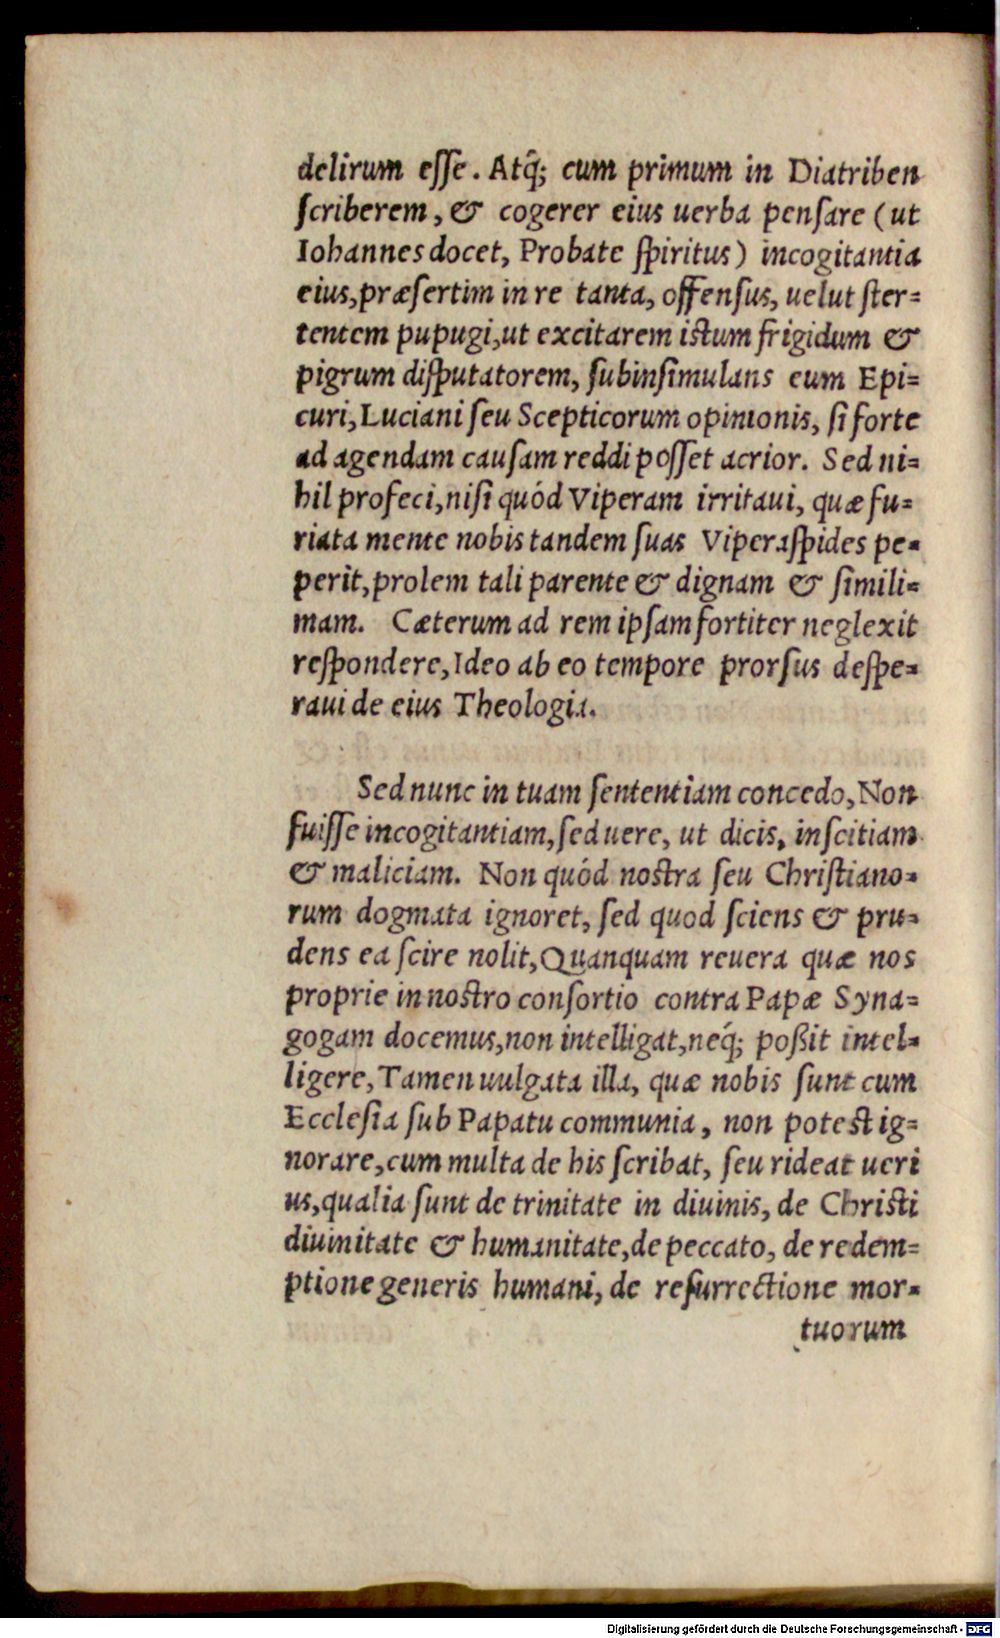 delirum eſſe. Atq̃; cum primum in Diatriben
ſcriberem, & cogerer eius uerba penſare (ut
Iohannes docet, Probate ſpiritus) incogitantia
eius, præſertim in re tanta, offenſus, uelut ſter=
tentem pupugi, ut excitarem iſtum frigidum &
pigrum diſputatorem, ſubinſimulans eum Epi=
curi, Luciani ſeu Scepticorum opinionis, ſi forte
ad agendam cauſam reddi poſſet acrior. Sed ni=
hil profeci, niſi quód Viperam irritaui, quæ fu=
riata mente nobis tandem ſuas Viperaſpides pe=
perit, prolem tali parente & dignam & ſimili=
mam. Cæterum ad rem ipſam fortiter neglexit
reſpondere, Ideo ab eo tempore prorſus deſpe=
raui de eius Theologia.
Sed nunc in tuam ſententiam concedo, Non
fuiſſe incogitantiam, ſed uere, ut dicis, inſcitiam
& maliciam. Non quód noſtra ſeu Chriſtiano=
rum dogmata ignoret, ſed quod ſciens & pru=
dens ea ſcire nolit, Quanquam reuera quæ nos
proprie in noſtro conſortio contra Papæ Syna=
gogam docemus, non intelligat, neq́; poßit intel=
ligere, Tamen uulgata illa, quæ nobis ſunt cum
Eccleſia ſub Papatu communia, non poteſt ig=
norare, cum multa de his ſcribat, ſeu rideat ueri
us, qualia ſunt de trinitate in diuinis, de Chriſti
diuinitate & humanitate, de peccato, de redem=
ptione generis humani, de reſurrectione mor=
tuorum
Digitalisierung gefördert durch die Deutsche Forschungsgemeinschaft - DFG